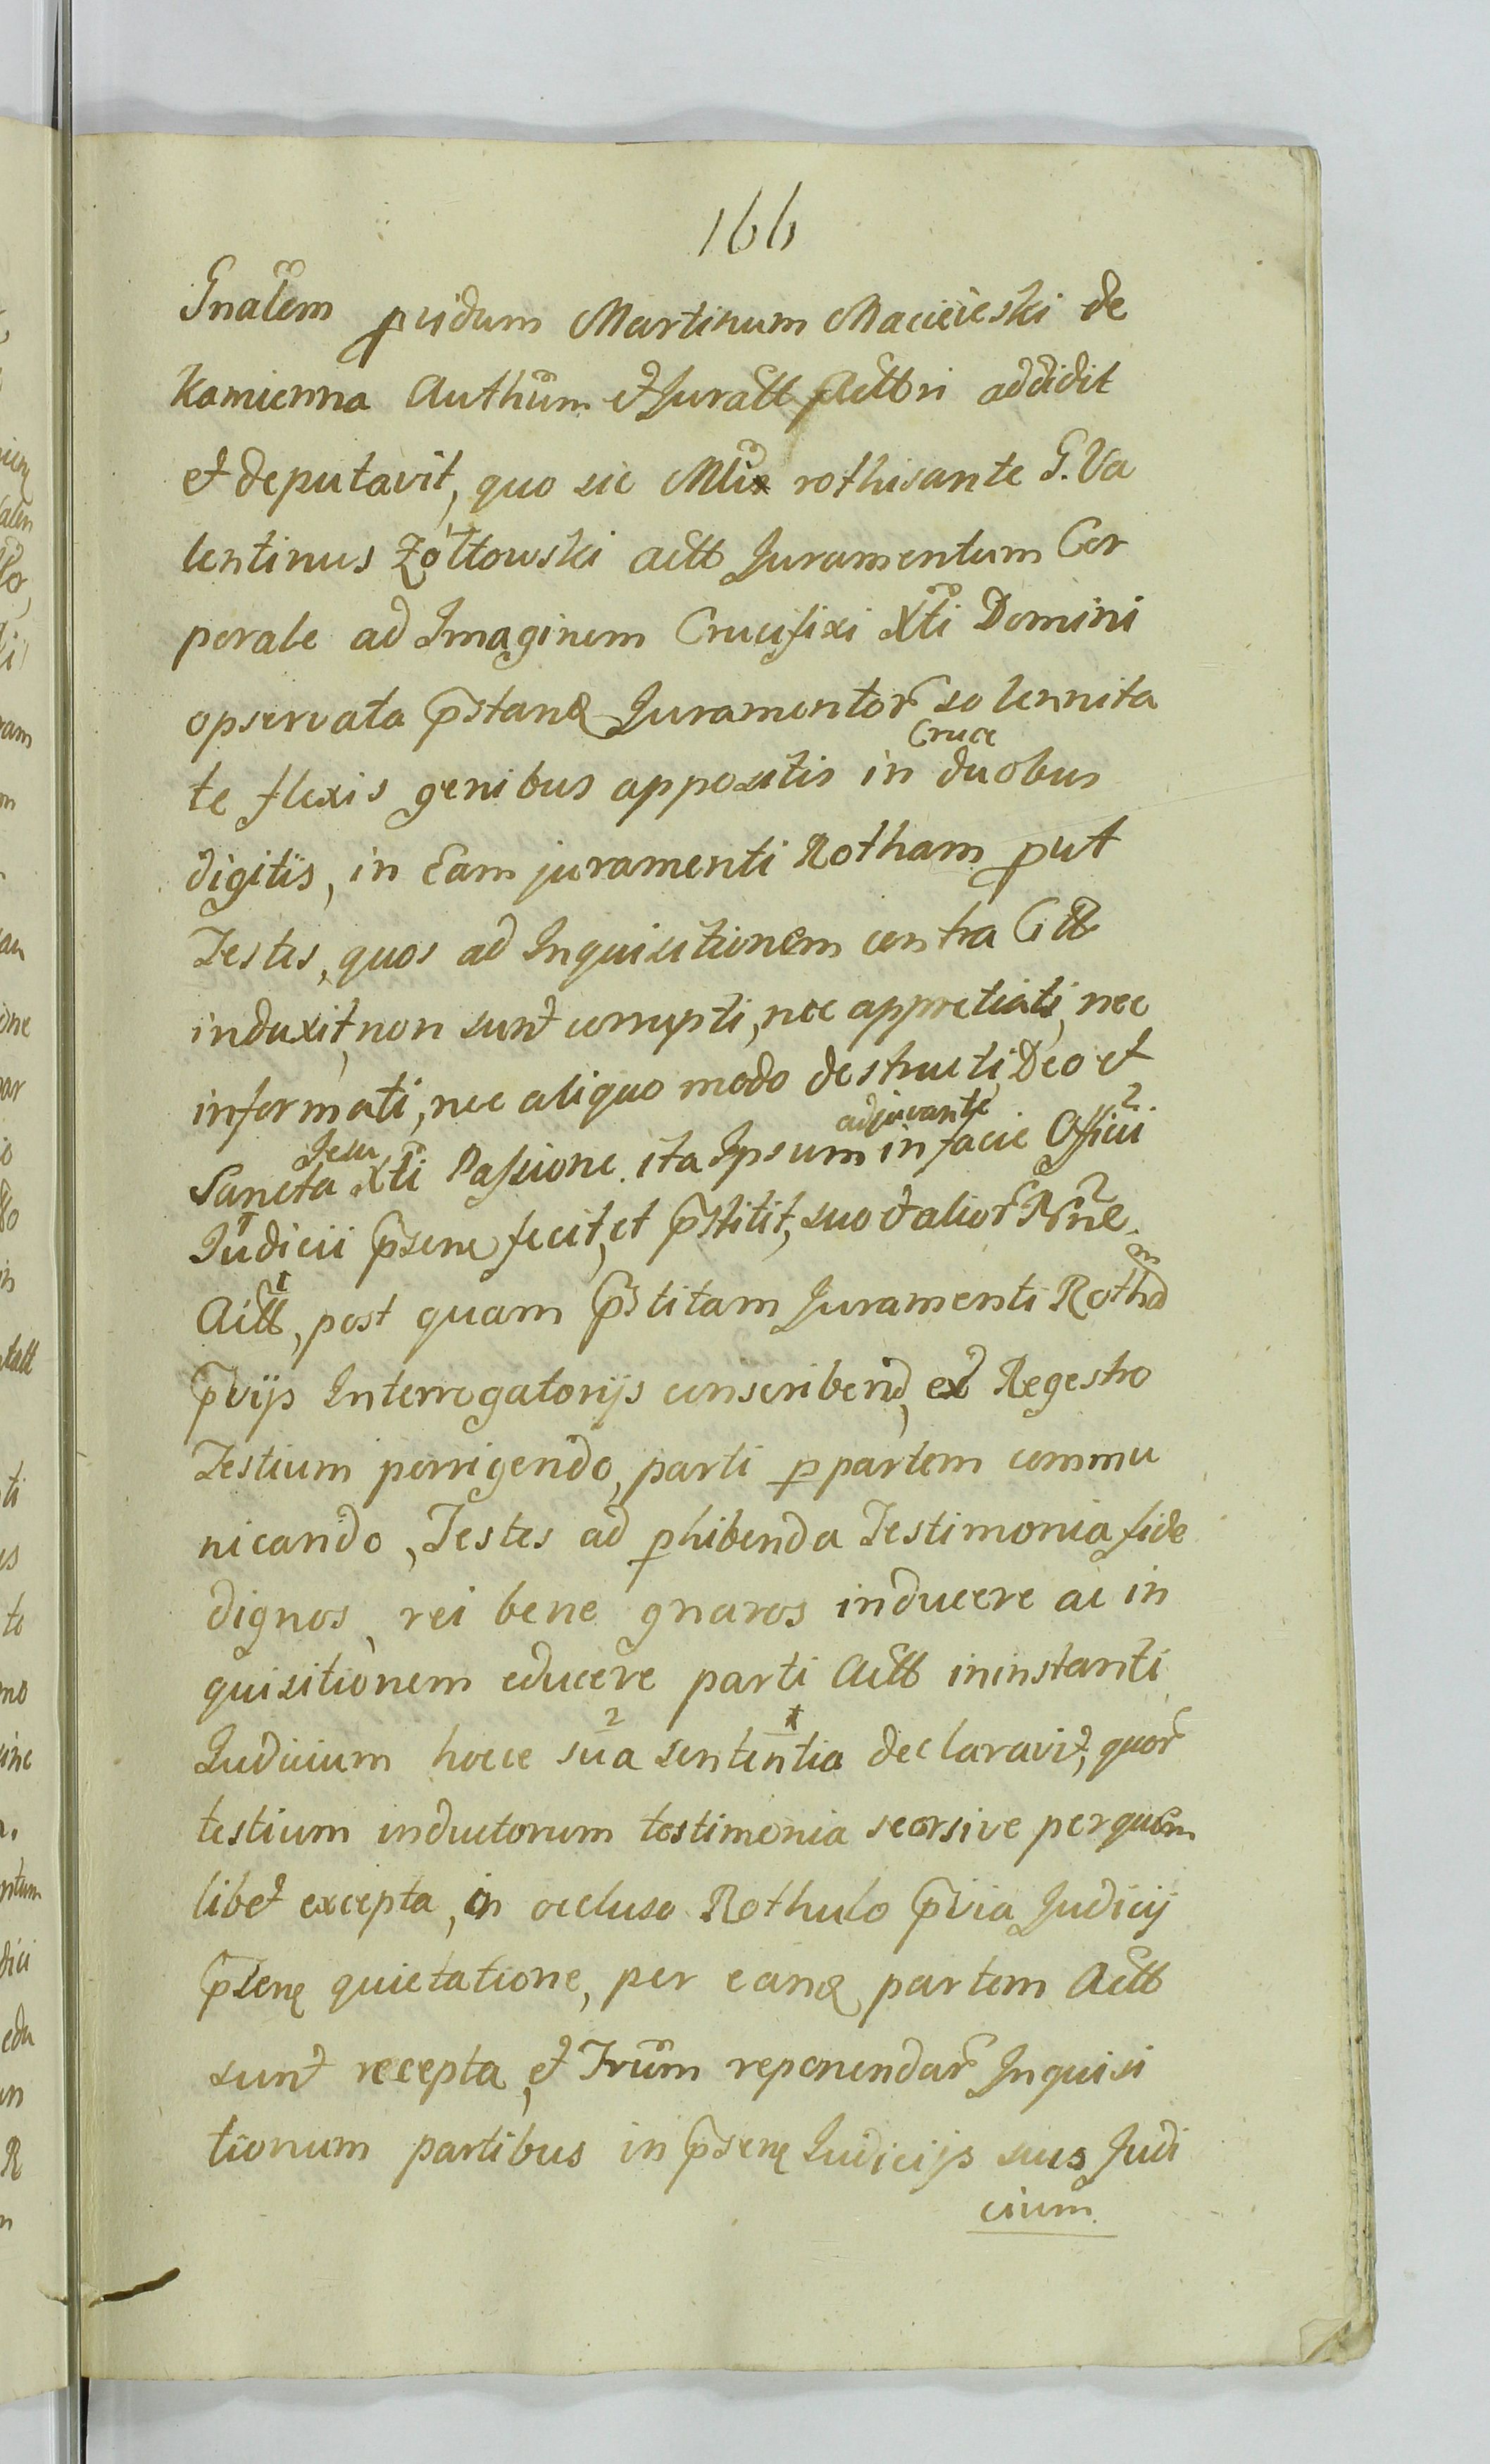 166
Gnalem pudum Martinum Macieieski de
Kamienna Authum et Juratt Actori addidit
et deputavit, quo sic rothisante G. Va
lentinus Zołtowski actt Juramentum Cor
porale ad Imaginem Crucifixi Xti Domini
opservata pstand Juramentor solennita
Cruce
te flexis genibus appositis in duobus
digitis, in Eam juramenti Rotham put
Testes, quos ad Inquisitionem contra Citt
induxit, non sunt corrupti, nec appretiati, nec
informati, nec aliquo modo destructi, Deo et
Jesu adjuvante 2
Sancta Xti Passione. ita Ipsum in facie Officii
Judicii psene fecit, et pstitit, suo et alior Nne
Actt, post quam pstitam Juramenti Rotham
pviis Interrogatorijs conscribend, ex Regestro
Testium porrigendo, parti p partem commu
nicando, Testes ad phibenda Testimonia fide
dignos, rei bene gnaros inducere ac in
quisitionem educere parti Actt ininstanti
2 1
Judicium hocce sua sententia declaravit, quor
testium inductorum testimonia seorsive perquem
libet excepta, in occluso Rothulo pvia Judicij
psene quietatione, per eand partem Actt
sunt recepta, et Trum reponendar Inquisi
tionum partibus in psene Judicijs suis Judi
cium